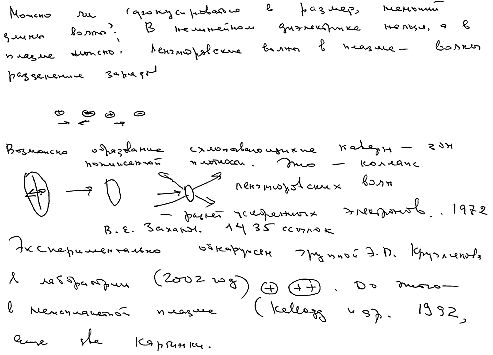 Можно ли сфокусировать в размер, меньший
длины волны? В нелинейном диэлектрике нельзя, а в
плазме можно. Ленгмюровские волны в плазме — волны
разделения заряда
Возможно образование схлопывающихся каверн — зон
пониженной плотности. Это — коллапс
ленгмюровских волн
— расчёт ускоренных электронов.. 1972
В. Е. Захаров. 1435 ссылок
Экспериментально обнаружен группой Э. П. Кругляков
в лаборатории (2002 год) + ++. До этого —
в мезосферной плазме (Kellogg и др. 1992,
еще две картинки.